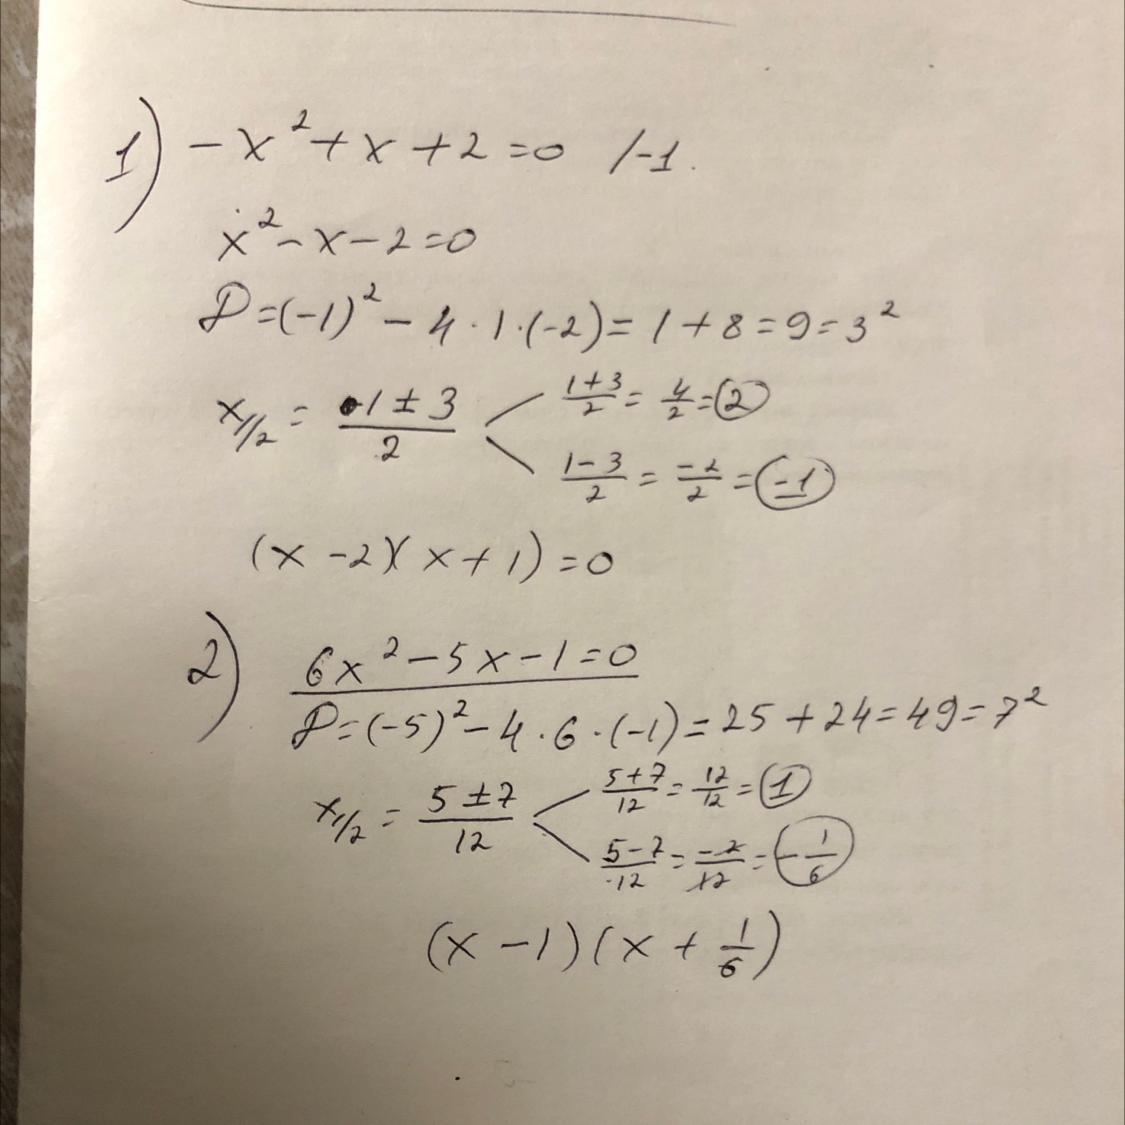 1) -x² + x + 2 = 0 /-1.
x² - x - 2 = 0
D = (-1)² - 4 · 1 · (-2) = 1 + 8 = 9 = 3²
x1/2 = 1 ± 3 / 2
1+3/2 = 4/2 = 2
1-3/2 = -2/2 = -1
(x - 2)(x + 1) = 0
2) 6x² - 5x - 1 = 0
D = (-5)² - 4 · 6 · (-1) = 25 + 24 = 49 = 7²
x1/2 = 5 ± 7 / 12
5+7/12 = 12/12 = 1
5-7/12 = -2/12 = -1/6
(x - 1)(x + 1/6)